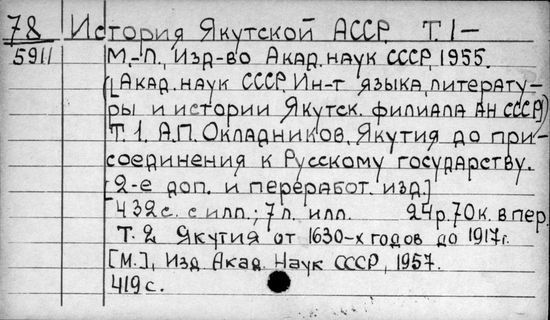 78 История Якутской АССР. Т. I –
5911 М.-Л., Изд-во Акад. наук СССР, 1955.
(Акад. наук СССР. Ин-т языка, литерату-
ры и истории Якутск. филиала АН СССР)
Т. 1. А.П. Окладников. Якутия до при-
соединения к Русскому государству.
[2-е доп. и переработ. изд.]
432 с. с илл.; 7 л. илл. 24 р. 70 к. в пер.
Т. 2 Якутия от 1630-х годов до 1917 г.
[М.], Изд. Акад. Наук СССР, 1957.
419 с.